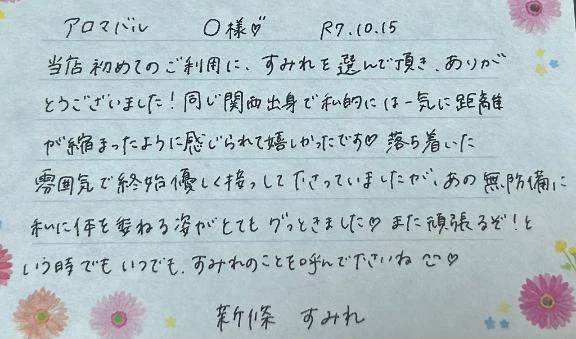 アロマバル 〇様♡ R7.10.15
当店初めてのご利用に、すみれを選んで頂き、ありが
とうございました！同じ関西出身で私的には一気に距離
が縮まったように感じられて嬉しかったです♡落ち着いた
雰囲気で終始優しく接っして下さっていましたが、あの無防備に
私に体を委ねる姿がとてもグッときました♡また頑張るぞ！と
いう時でもいつでも、すみれのことを呼んで下さいね♡
新條 すみれ